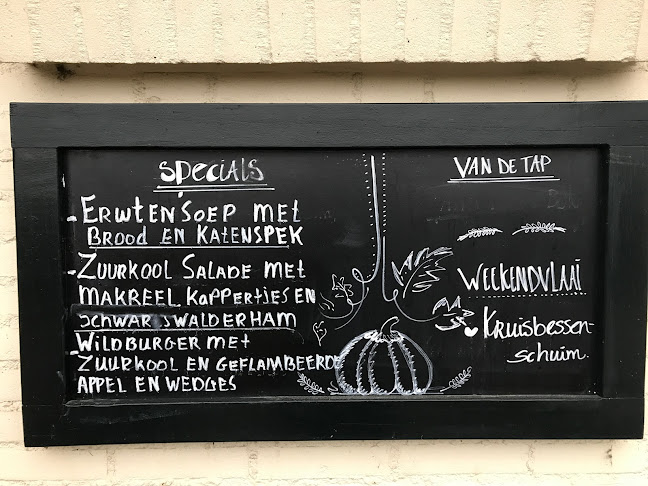 SPECIALS
- ERWTENSOEP MET
BROOD EN KATENSPEK
- ZUURKOOL SALADE MET
MAKREEL KAPPERTJES EN
SCHWARSWALDERHAM
WILDBURGER MET
- ZUURKOOL EN GEFLAMBEERDE
APPEL EN WEDGES
VAN DE TAP
WEEKENDVLAAI
KRUISBESSEN-
SCHUIM.